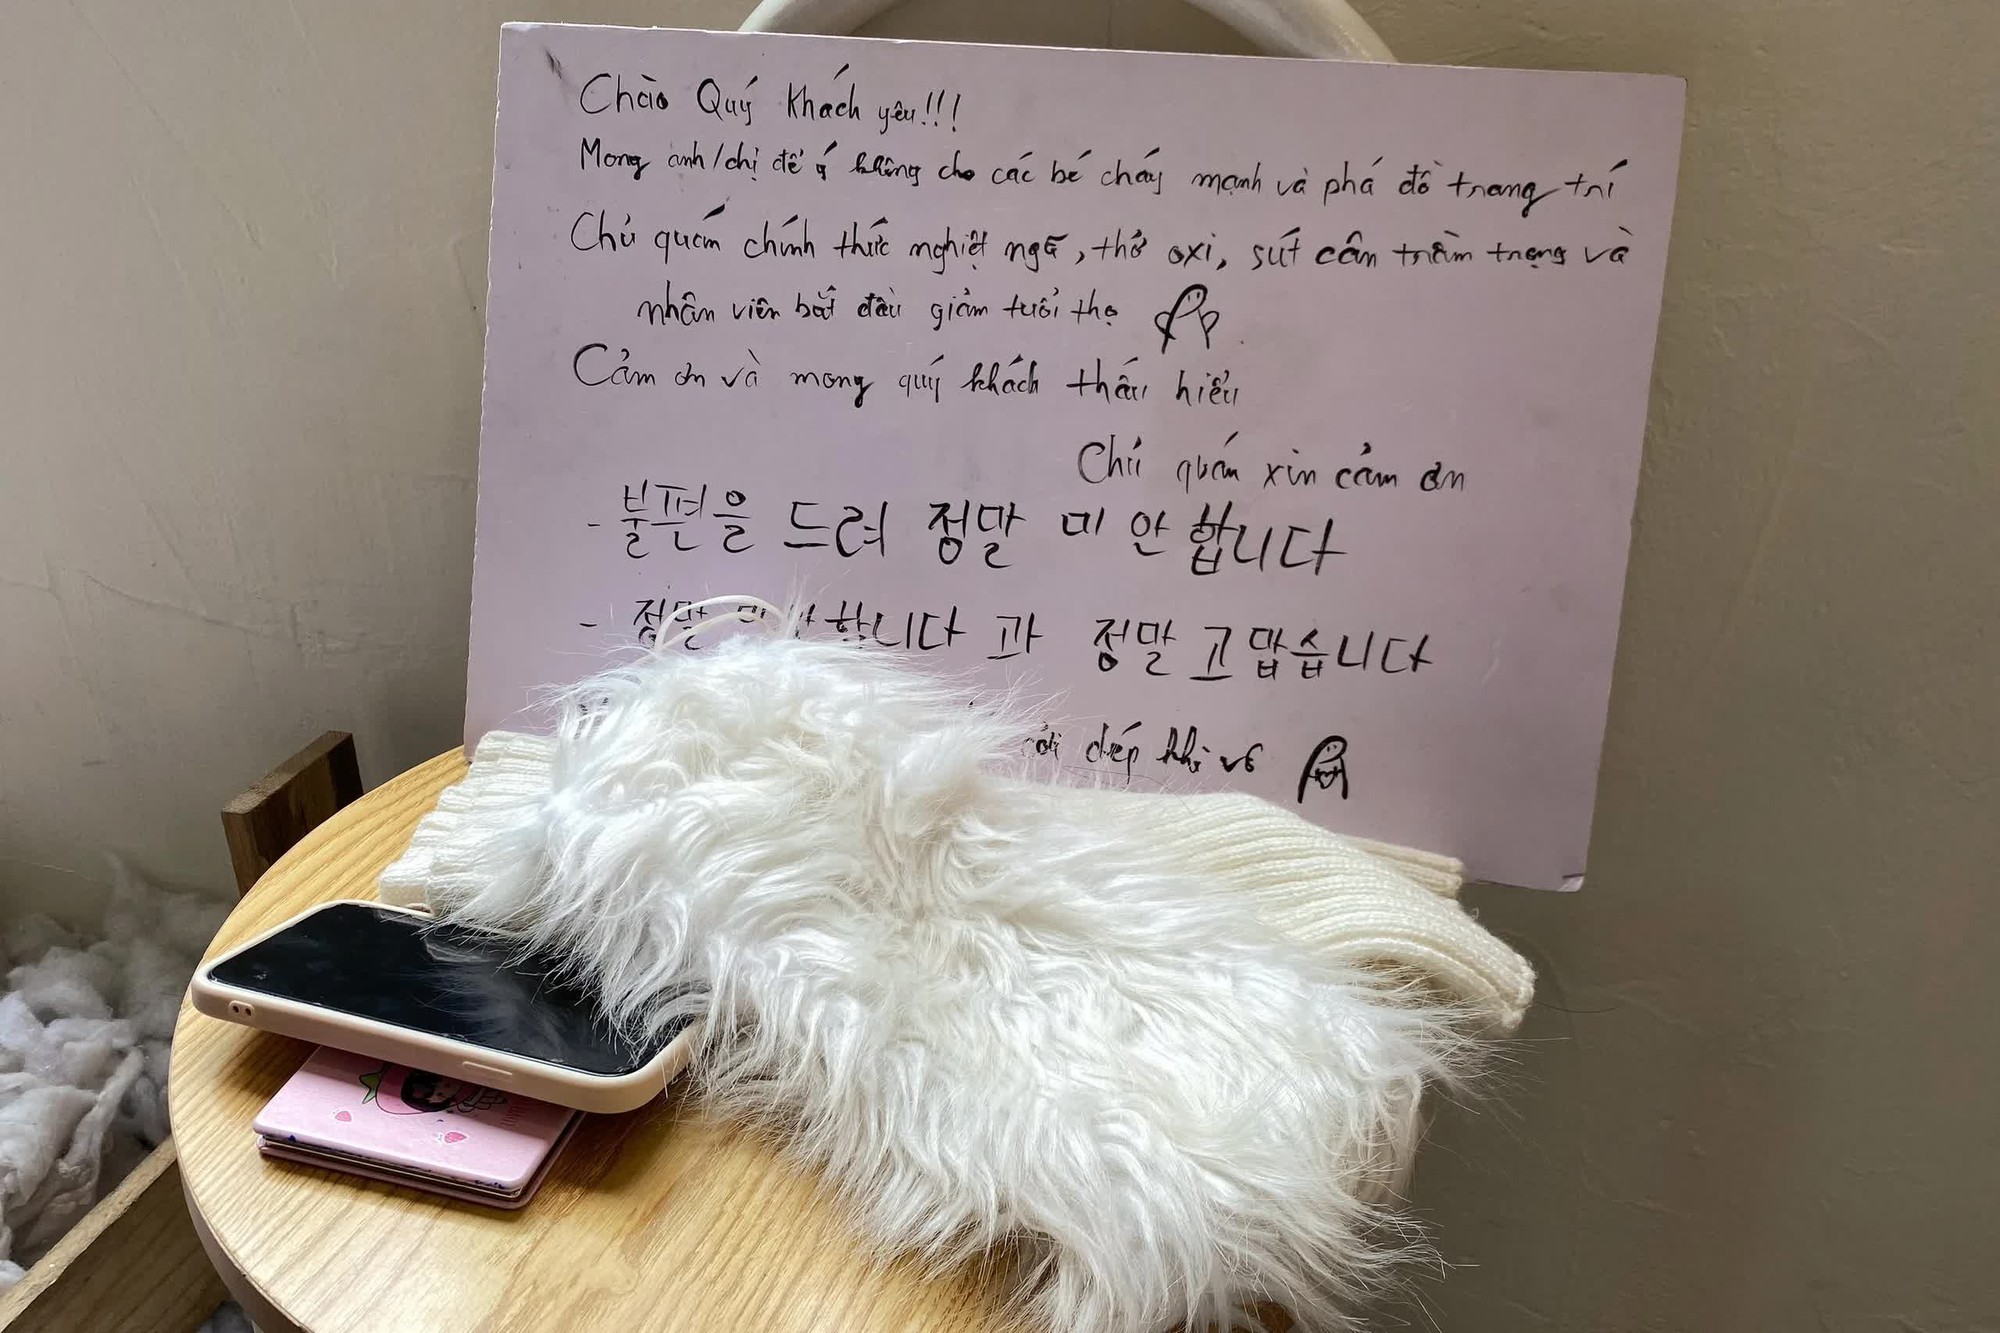 Chào Quý khách yêu!!!
Mong anh/chị để ý không cho các bé cháy mạnh và phá đồ trang trí
Chủ quán chính thức nghiệt ngã, thở oxi, sút cân trầm trọng và
nhân viên bắt đầu giảm tuổi thọ
Cảm ơn và mong quý khách thấu hiểu
Chủ quán xin cảm ơn
- 불편을 드려 정말 미안합니다
- 정말 미안합니다 과 정말 고맙습니다
dép khi về